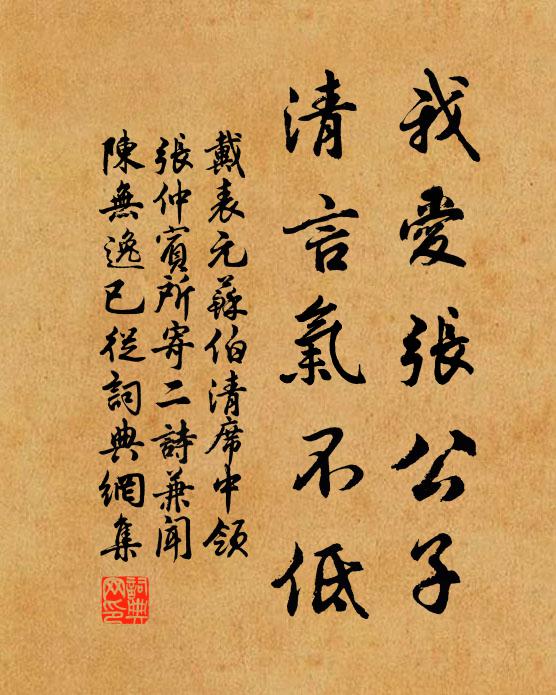 我愛張公子
清言氣不低
戴表元蘇伯清席中領
張仲賓所寄二詩兼聞
陳無逸已從詞典網集
詞典网印